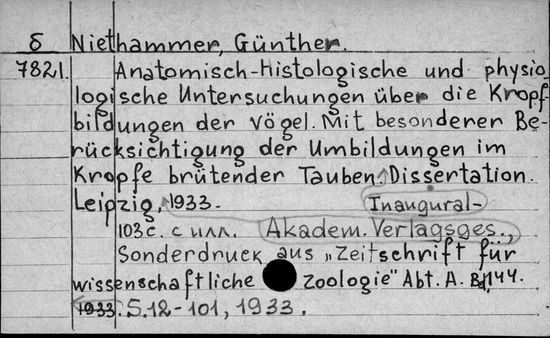 δ Niethammer, Günther.
7821. Anatomisch-histologische und physio
logische Untersuchungen über die Kropf
bildungen der Vögel. Mit besonderer Be-
rücksichtigung der Umbildungen im
Kropfe brütender Tauben. Dissertation.
Leipzig, 1933. Inaugural-
103 с. с илл. Akadem. Verlagsges.,
Sonderdruck aus „Zeitschrift für
wissenschaftliche Zoologie" Abt. A. Bd 144.
1933. S. 12-101, 1933.